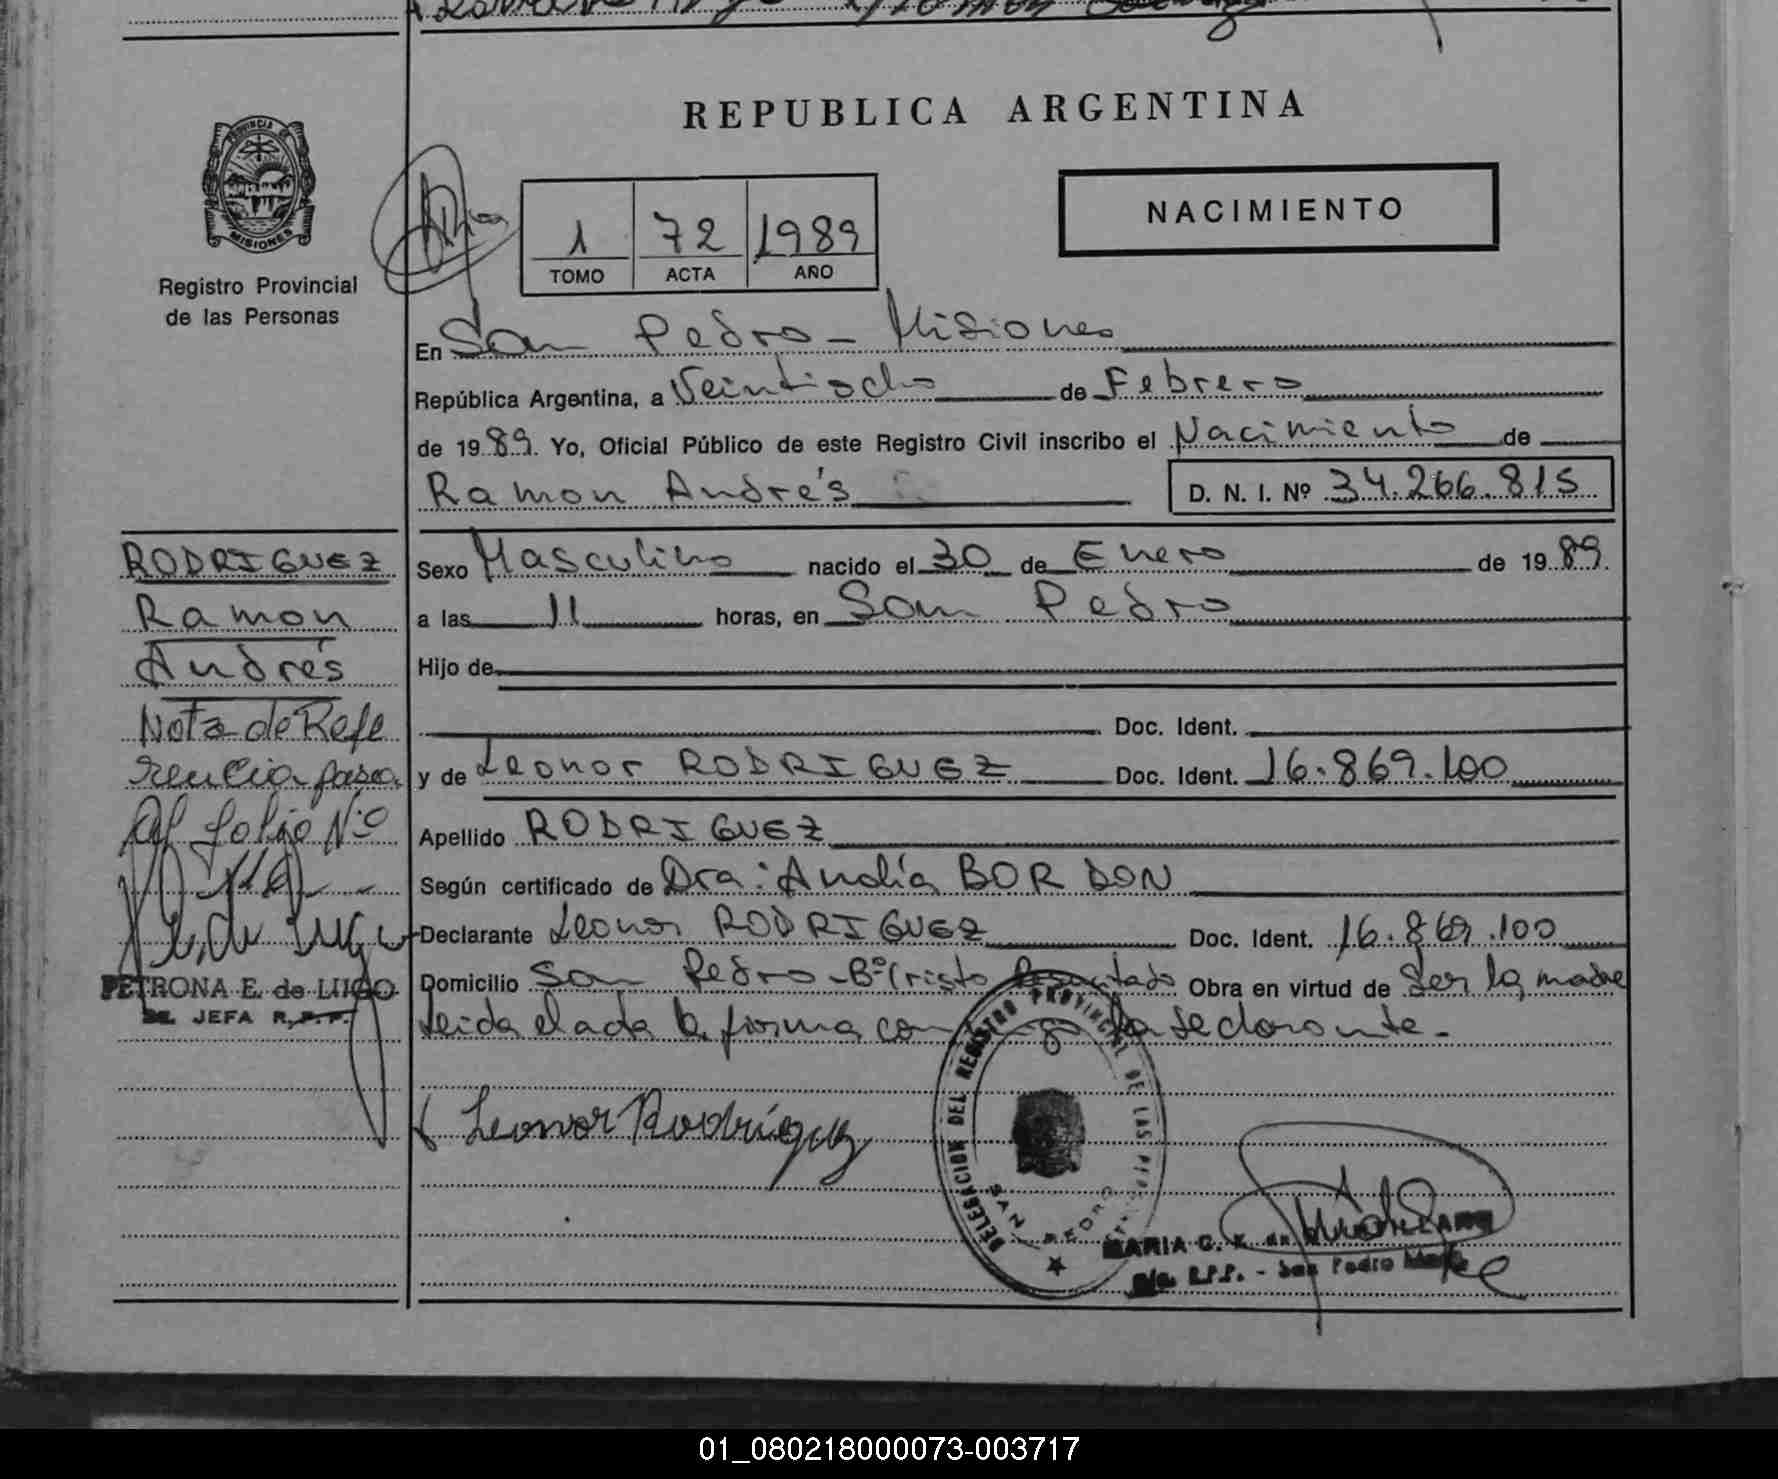 REPUBLICA ARGENTINA
PROVINCIA DE
MISIONES
Registro Provincial
de las Personas
1 72 1989
TOMO ACTA AÑO
NACIMIENTO
En San Pedro - Misiones
República Argentina, a Veintiocho de Febrero
de 1989. Yo, Oficial Público de este Registro Civil inscribo el Nacimiento de
Ramon Andrés D. N. I. Nº 34.266.815
RODRIGUEZ
Ramon
Andrés
Nota de Refe
rencia pasa
al folio Nº
PETRONA E. de LUGO
JEFA R.P.P.
Sexo Masculino nacido el 30 de Enero de 1989.
a las 11 horas, en San Pedro
Hijo de
Doc. Ident.
y de Leonor RODRIGUEZ Doc. Ident. 16.869.100
Apellido RODRIGUEZ
Según certificado de Dra: Analía BORDON
Declarante Leonor RODRIGUEZ Doc. Ident. 16.869.100
Domicilio San Pedro - Bº Cristo Resucitado Obra en virtud de ser la madre
leida el acta la firma conmigo la declarante.
Leonor Rodríguez
DELEGACION DEL REGISTRO PROVINCIAL DE LAS PER
SAN PEDRO
MARIA C.
R.P.P. - San Pedro
01_080218000073-003717